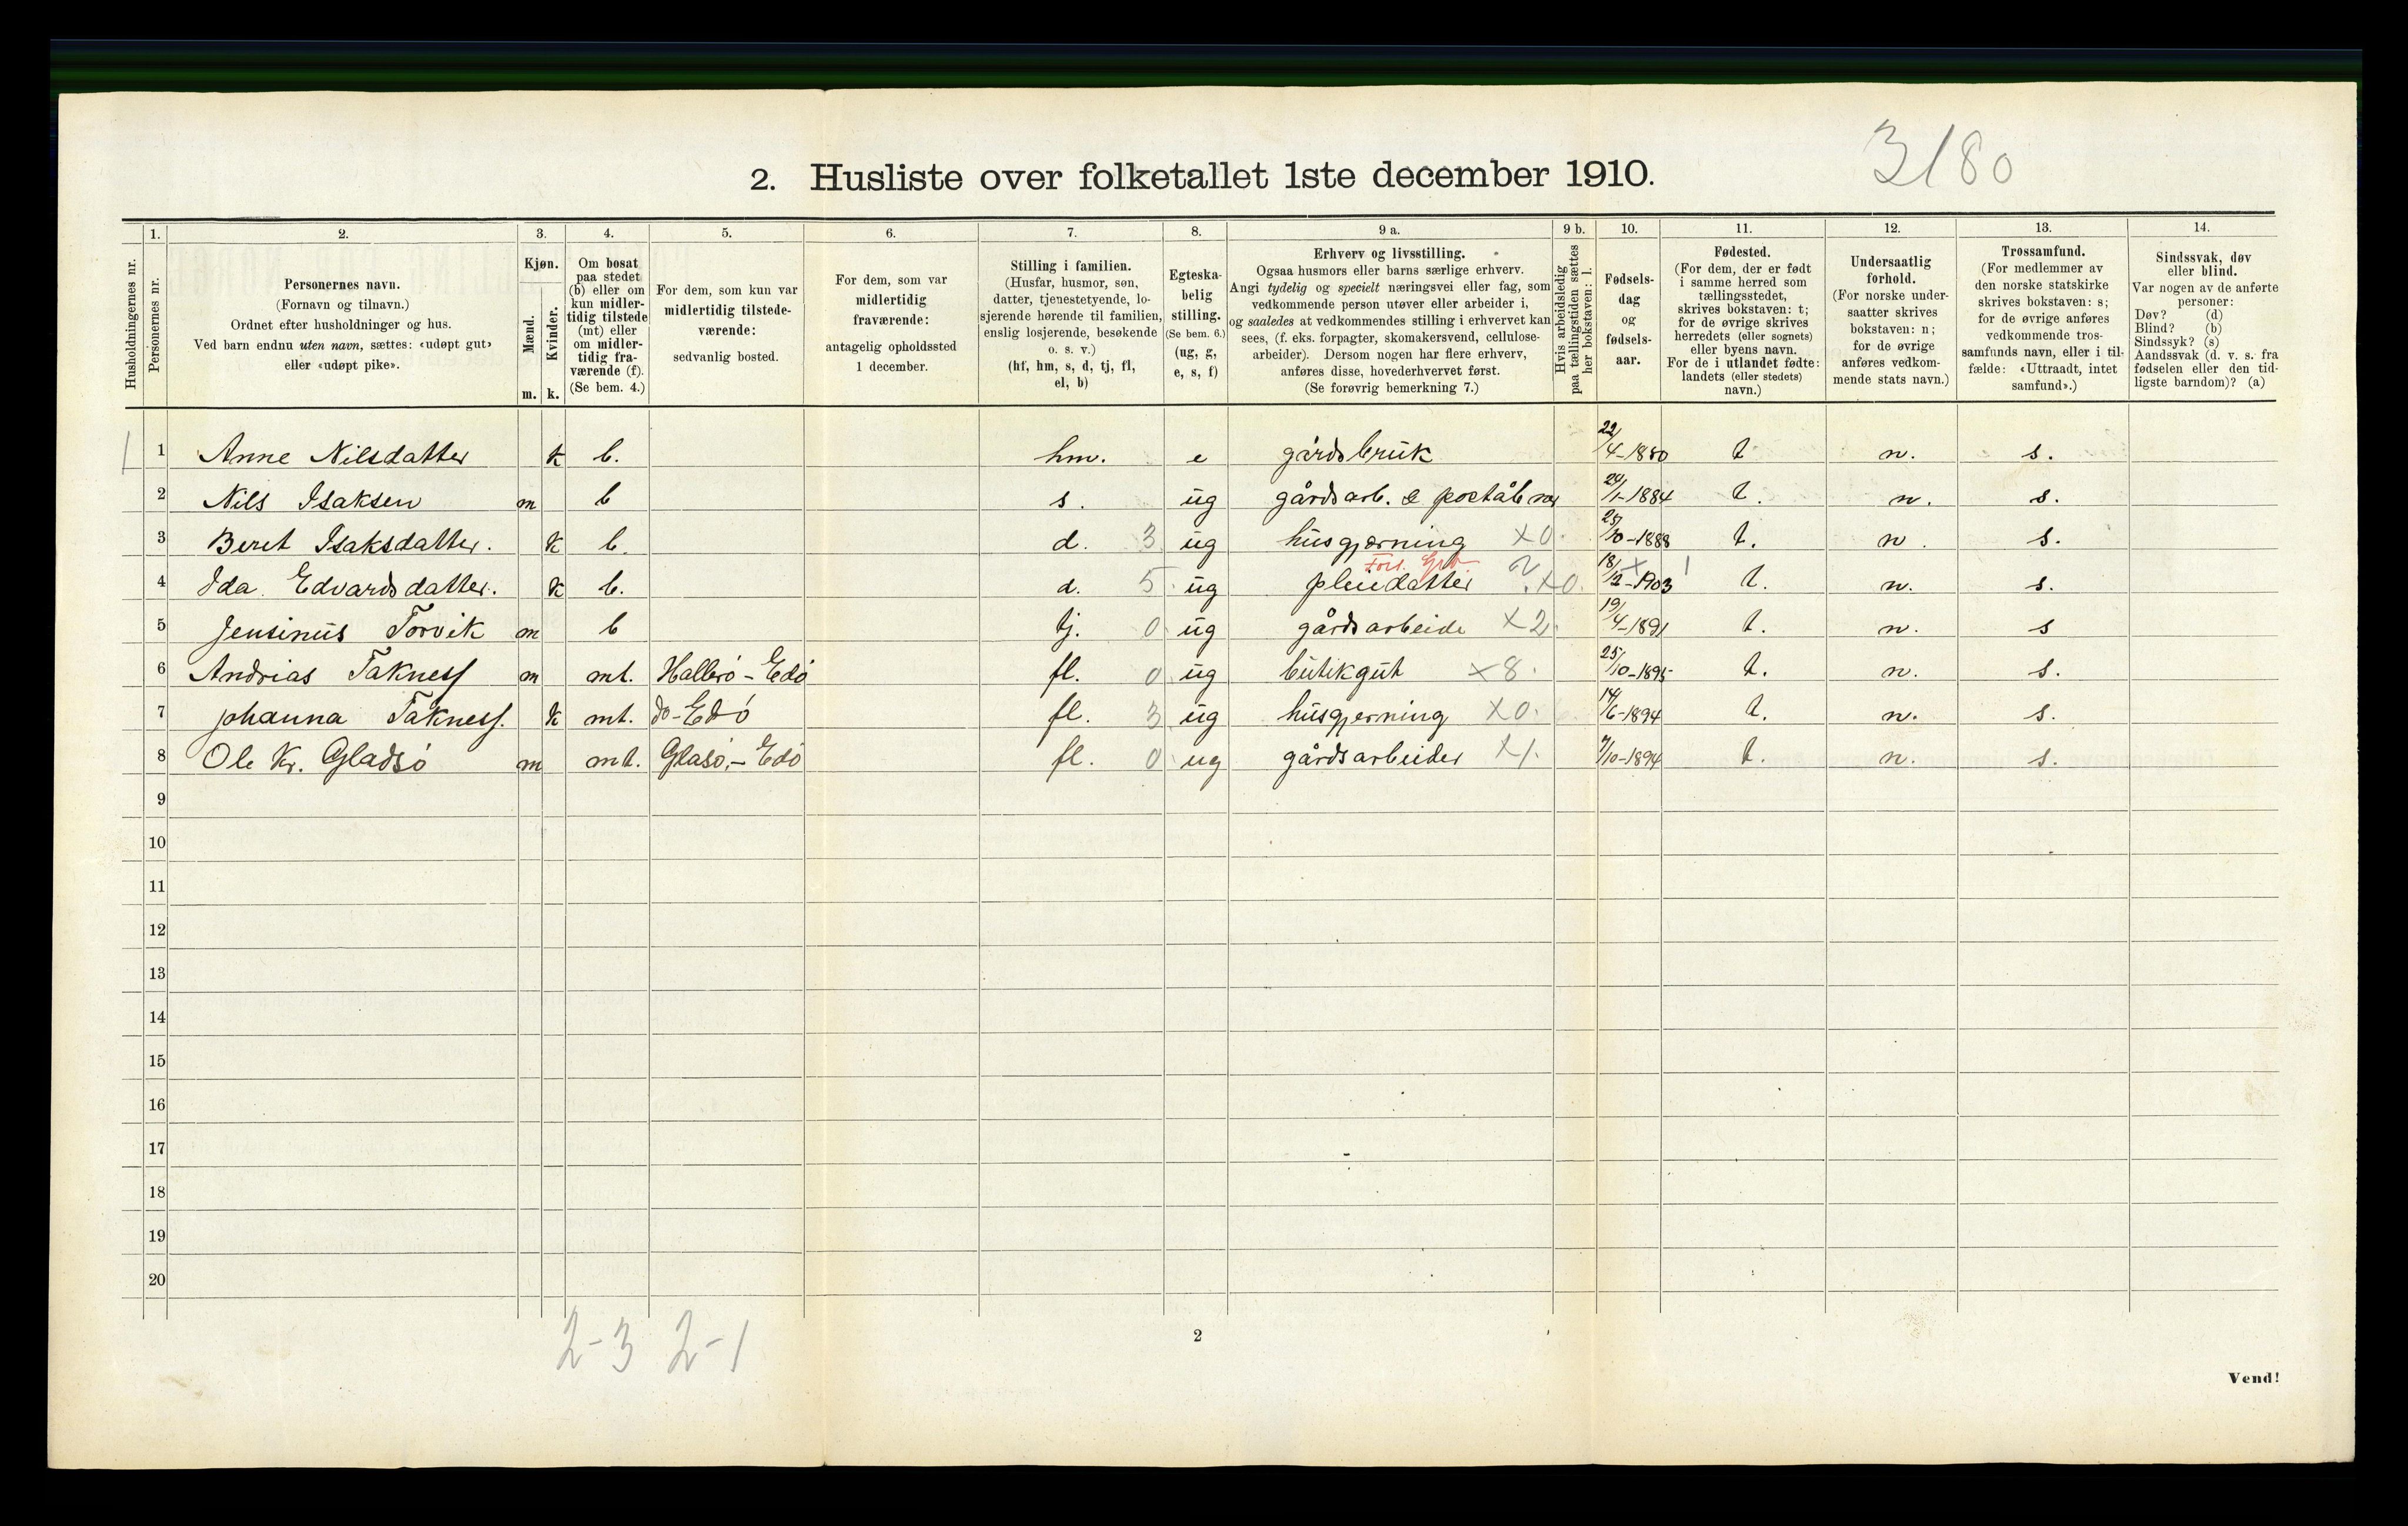 3180
2. Husliste over folketallet 1ste december 1910.
Husholdningernes nr.
1.
Personernes nr.
2.
Personernes navn.
(Fornavn og tilnavn.)
Ordnet efter husholdninger og hus.
Ved barn endnu uten navn, sættes: «udøpt gut»
eller «udøpt pike».
3.
Kjøn.
Mænd.
Kvinder.
m. k.
4.
Om bosat
paa stedet
(b) eller om
kun midler-
tidig tilstede
(mt) eller
om midler-
tidig fra-
værende (f).
(Se bem. 4.)
5.
For dem, som kun var
midlertidig tilstede-
værende:
sedvanlig bosted.
6.
For dem, som var
midlertidig
fraværende:
antagelig opholdssted
1 december.
7.
Stilling i familien.
(Husfar, husmor, søn,
datter, tjenestetyende, lo-
sjerende hørende til familien,
enslig losjerende, besøkende
o. s. v.)
(hf, hm, s, d, tj, fl,
el, b)
8.
Egteska-
belig
stilling.
(Se bem. 6.)
(ug, g,
e, s, f)
9 a.
Erhverv og livsstilling.
Ogsaa husmors eller barns særlige erhverv.
Angi tydelig og specielt næringsvei eller fag, som
vedkommende person utøver eller arbeider i,
og saaledes at vedkommendes stilling i erhvervet kan
sees, (f. eks. forpagter, skomakersvend, cellulose-
arbeider). Dersom nogen har flere erhverv,
anføres disse, hovederhvervet først.
(Se forøvrig bemerkning 7.)
9 b.
Hvis arbeidsledig
paa tællingstiden sættes
her bokstaven: l.
10.
Fødsels-
dag
og
fødsels-
aar.
11.
Fødested.
(For dem, der er født
i samme herred som
tællingsstedet,
skrives bokstaven: t;
for de øvrige skrives
herredets (eller sognets)
eller byens navn.
For de i utlandet fødte:
landets (eller stedets)
navn.)
12.
Undersaatlig
forhold.
(For norske under-
saatter skrives
bokstaven: n;
for de øvrige
anføres vedkom-
mende stats navn.)
13.
Trossamfund.
(For medlemmer av
den norske statskirke
skrives bokstaven: s;
for de øvrige anføres
vedkommende tros-
samfunds navn, eller i til-
fælde: «Uttraadt, intet
samfund».)
14.
Sindssvak, døv
eller blind.
Var nogen av de anførte
personer:
Døv? (d)
Blind? (b)
Sindssyk? (s)
Aandssvak (d. v. s. fra
fødselen eller den tid-
ligste barndom)? (a)
1 1 Anne Nilsdatter k b. hm. e gårdsbruk 22/4-1850 t n. s.
2 Nils Isaksen m b s. ug gårdsarb. & poståbner 24/1-1884 t. n. s.
3 Beret Isaksdatter. k b. d. 3 ug husgjærning x0. 25/10-1888 t. n. s.
4 Ida Edvardsdatter. k b. d. 5 ug pleiedatter x0. 18/12-1903 t. n. s.
5 Jensinus Torvik m b tj. 0 ug gårdsarbeide x2. 19/4-1891 t. n. s
6 Andrias Takness m mt. Hallerö - Edö fl. 0 ug butikgut x8. 25/10-1895 t. n. s.
7 Johanna Takness. k mt. do - Edö fl. 3 ug husgjerning x0. 14/6-1894 t. n. s.
8 Ole Kr. Gladsö m mt. Glasö, - Edö fl. 0 ug gårdsarbeider x1. 7/10-1894 t. n. s.
9
10
11
12
13
14
15
16
17
18
19
20
2-3 2-1
2
Vend!